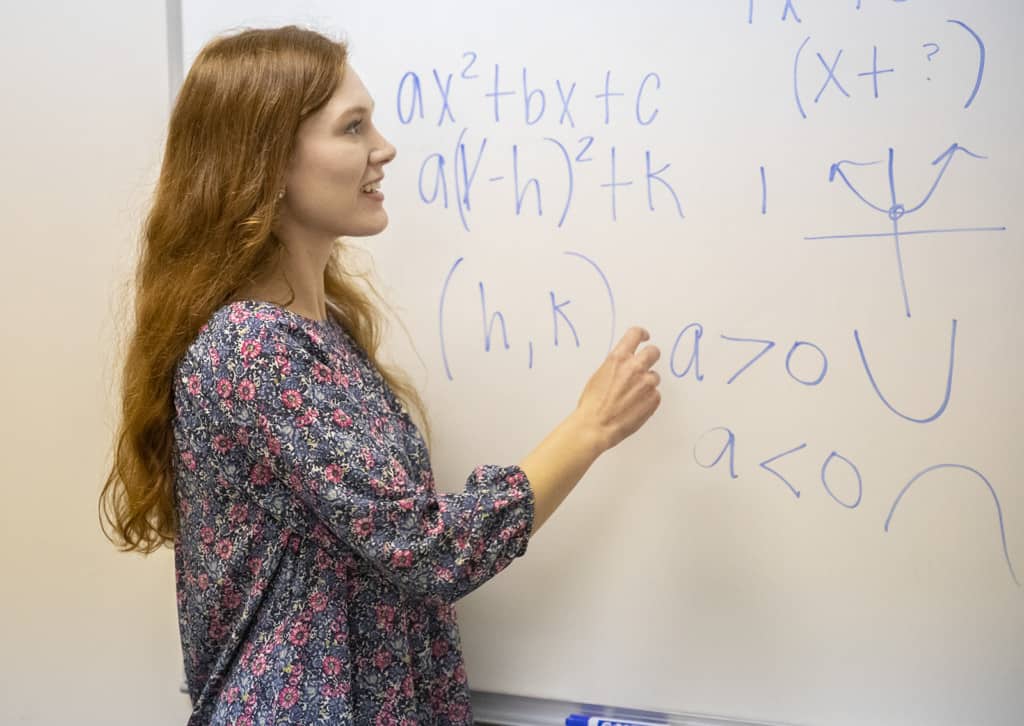 ax²+bx+c
(x+ ?)
a(x-h)²+k
(h,k)
a>0
a<0